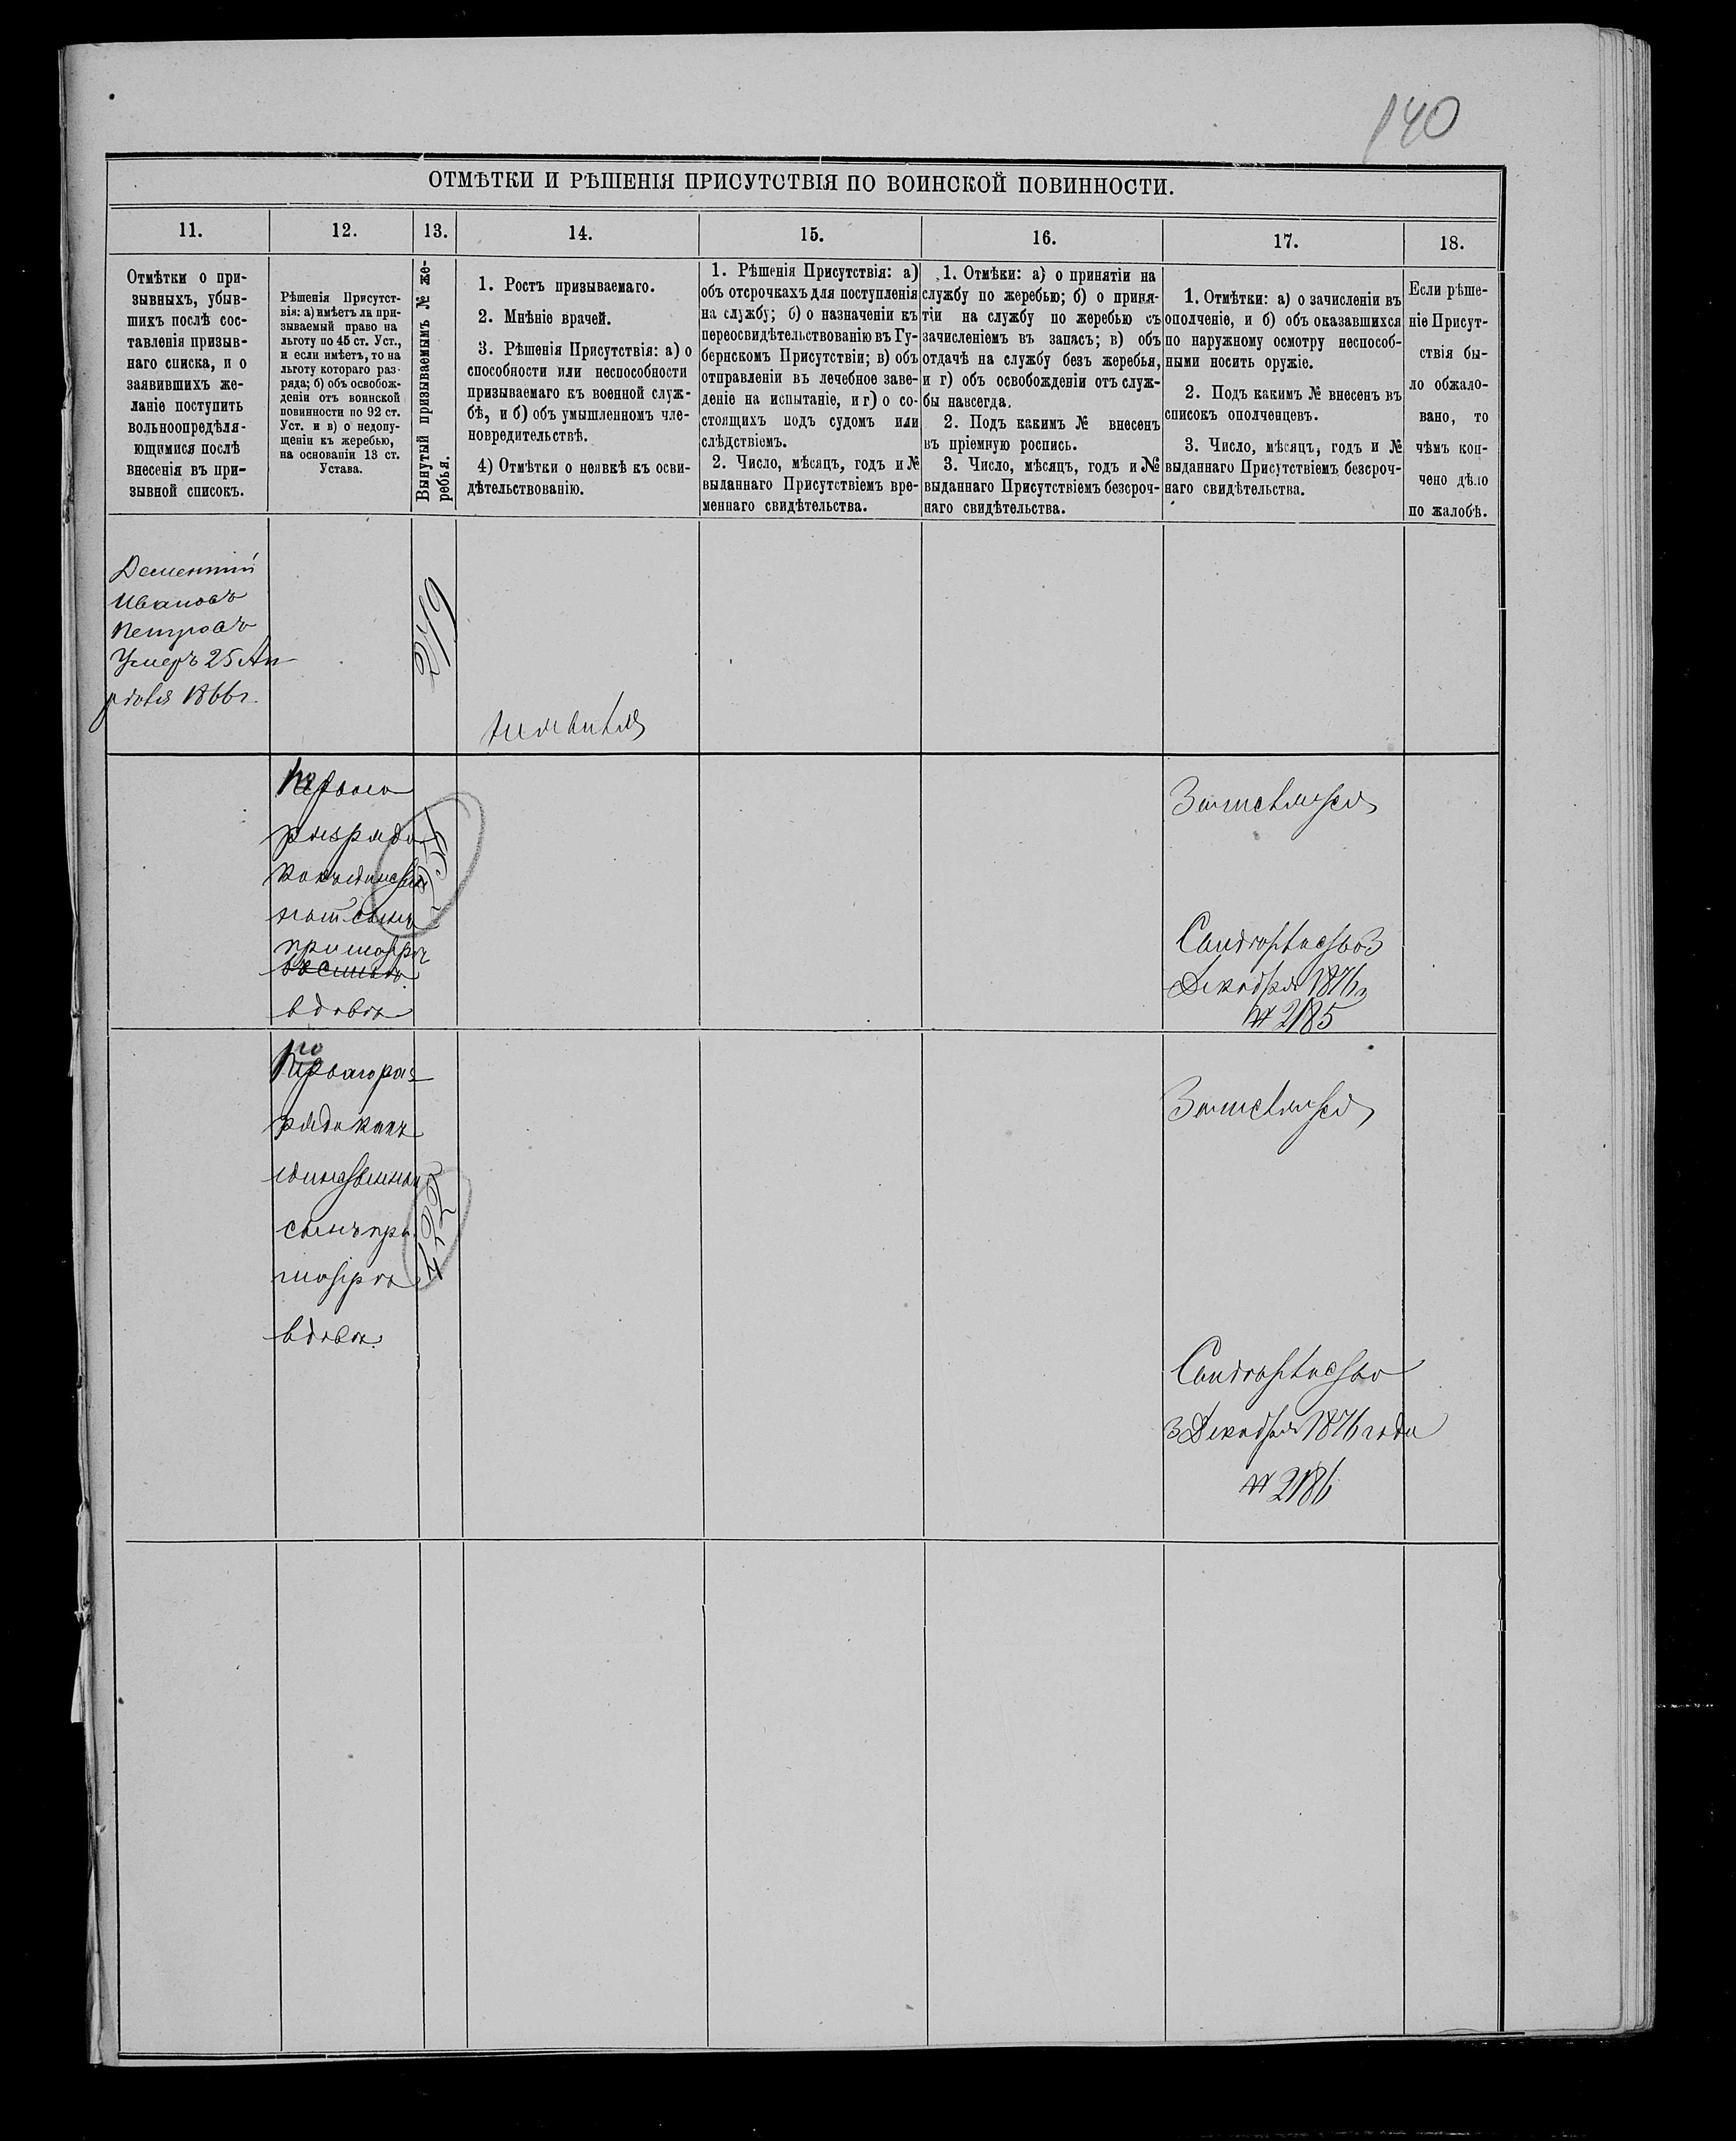 140
ОТМѢТКИ И РѢШЕНІЯ ПРИСУТСТВІЯ ПО ВОИНСКОЙ ПОВИННОСТИ.
11.
Отмѣтки о при-
зывныхъ, убыв-
шихъ послѣ сос-
тавленія призыв-
наго списка, и о
заявившихъ же-
ланіе поступить
вольноопредѣля-
ющимися послѣ
внесенія въ при-
зывной списокъ.
12.
Рѣшенія Присутст-
вія: а) имѣетъ ли при-
зываемый право на
льготу по 45 ст. Уст.,
и если имѣетъ, то на
льготу котораго раз-
ряда; б) объ освобож-
деніи отъ воинской
повинности по 92 ст.
Уст. и в) о недопу-
щеніи къ жеребью,
на основаніи 13 ст.
Устава.
13.
Вынутый призываемымъ № же-
ребья.
14.
1. Ростъ призываемаго.
2. Мнѣніе врачей.
3. Рѣшенія Присутствія: а) о
способности или неспособности
призываемаго къ военной служ-
бѣ, и б) объ умышленномъ чле-
новредительствѣ.
4) Отмѣтки о неявкѣ къ осви-
дѣтельствованію.
15.
1. Рѣшенія Присутствія: а)
объ отсрочкахъ для поступленія
на службу; б) о назначеніи къ
переосвидѣтельствованію въ Гу-
бернскомъ Присутствіи; в) объ
отправленіи въ лечебное заве-
деніе на испытаніе, и г) о со-
стоящихъ подъ судомъ или
слѣдствіемъ.
2. Число, мѣсяцъ, годъ и №
выданнаго Присутствіемъ вре-
меннаго свидѣтельства.
16.
1. Отмѣки: а) о принятіи на
службу по жеребью; б) о приня-
тіи на службу по жеребью съ
зачисленіемъ въ запасъ; в) объ
отдачѣ на службу безъ жеребья,
и г) объ освобожденіи отъ служ-
бы навсегда.
2. Подъ какимъ № внесенъ
въ пріемную роспись.
3. Число, мѣсяцъ, годъ и №
выданнаго Присутствіемъ безсроч-
наго свидѣтельства.
17.
1. Отмѣтки: а) о зачисленіи въ
ополченіе, и б) объ оказавшихся
по наружному осмотру неспособ-
ными носить оружіе.
2. Подъ какимъ № внесенъ въ
списокъ ополченцевъ.
3. Число, мѣсяцъ, годъ и №
выданнаго Присутствіемъ безсроч-
наго свидѣтельства.
18.
Если рѣше-
ніе Присут-
ствія бы-
ло обжало-
вано, то
чѣмъ кон-
чено дѣло
по жалобѣ.
Дементій
Ивановъ
Петровъ
Умеръ 25 Ап
рѣля 1866г.
279
Перваго
разряда
сынъ
при
вдовѣ
Декабря 1876г
№ 2185
Перваго раз
ряда какъ
единственный
сынъ при
матери
вдовѣ.
422
3 Декабря 1876 года
№ 2186